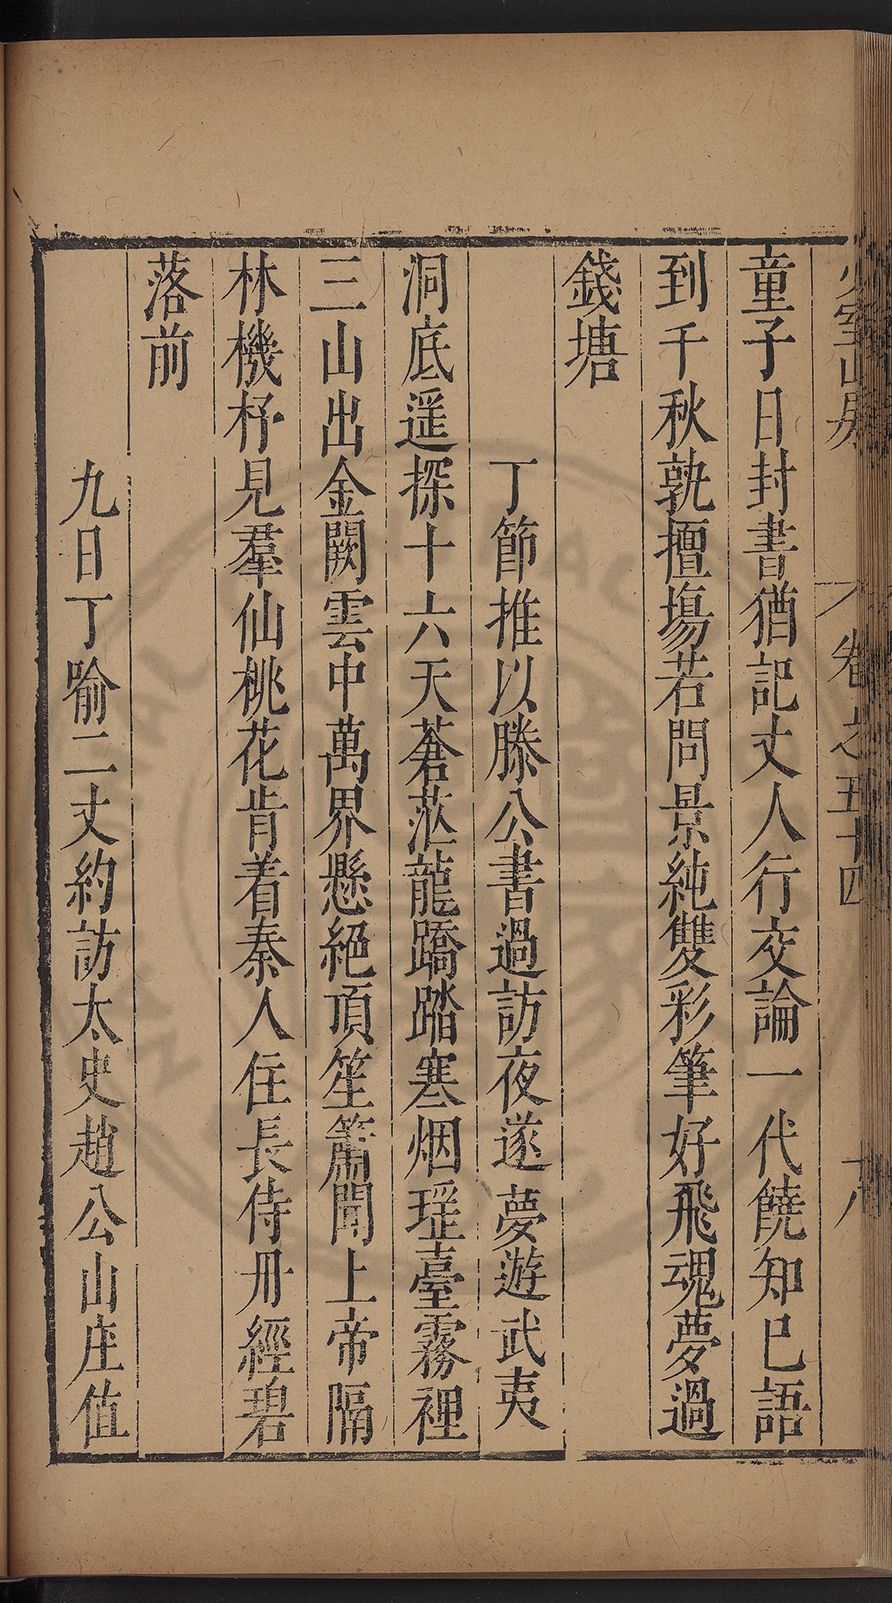 少室山房
卷之五十四
六
童子日封書猶記丈人行交論一代饒知巳語
到千秋孰擅塲若問景純雙彩筆好飛魂夢過
錢塘
丁節推以滕公書過訪夜遂夢遊武夷
洞底遥探十六天蒼茫龍蹻踏寒烟瑶臺霧裡
三山出金闕雲中萬界懸絕頂笙簫聞上帝隔
林機杼見羣仙桃花肯着秦人住長侍丹經碧
落前
九日丁喻二丈約訪太史趙公山庄值